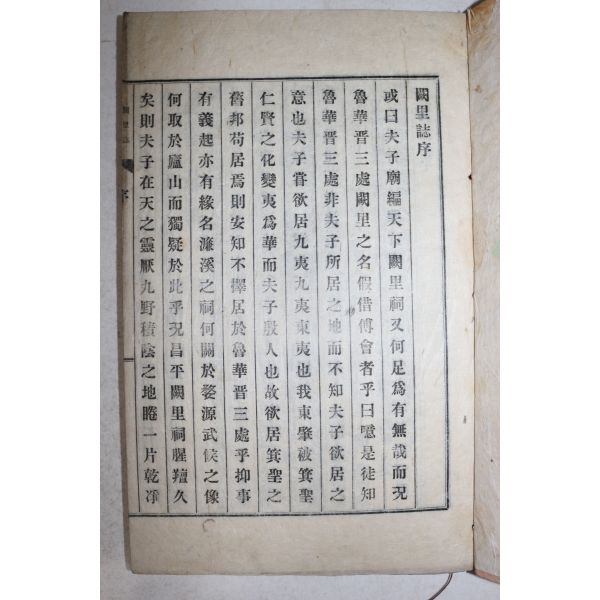 闕里誌序
或曰夫子廟徧天下闕里祠又何足爲有無哉而况
魯華晋三處闕里之名假借傅會者乎曰噫是徒知
魯華晋三處非夫子所居之地而不知夫子欲居之
意也夫子甞欲居九夷九夷東夷也我東肇被箕聖
仁賢之化變夷爲華而夫子殷人也故欲居箕聖之
舊邦苟居焉則安知不擇居於魯華晋三處乎抑事
有義起亦有緣名濂溪之祠何關於婺源武侯之像
何取於廬山而獨疑於此乎况昌平闕里祠腥羶久
矣則夫子在天之靈厭九野積陰之地睠一片乾凈
闕里誌
序